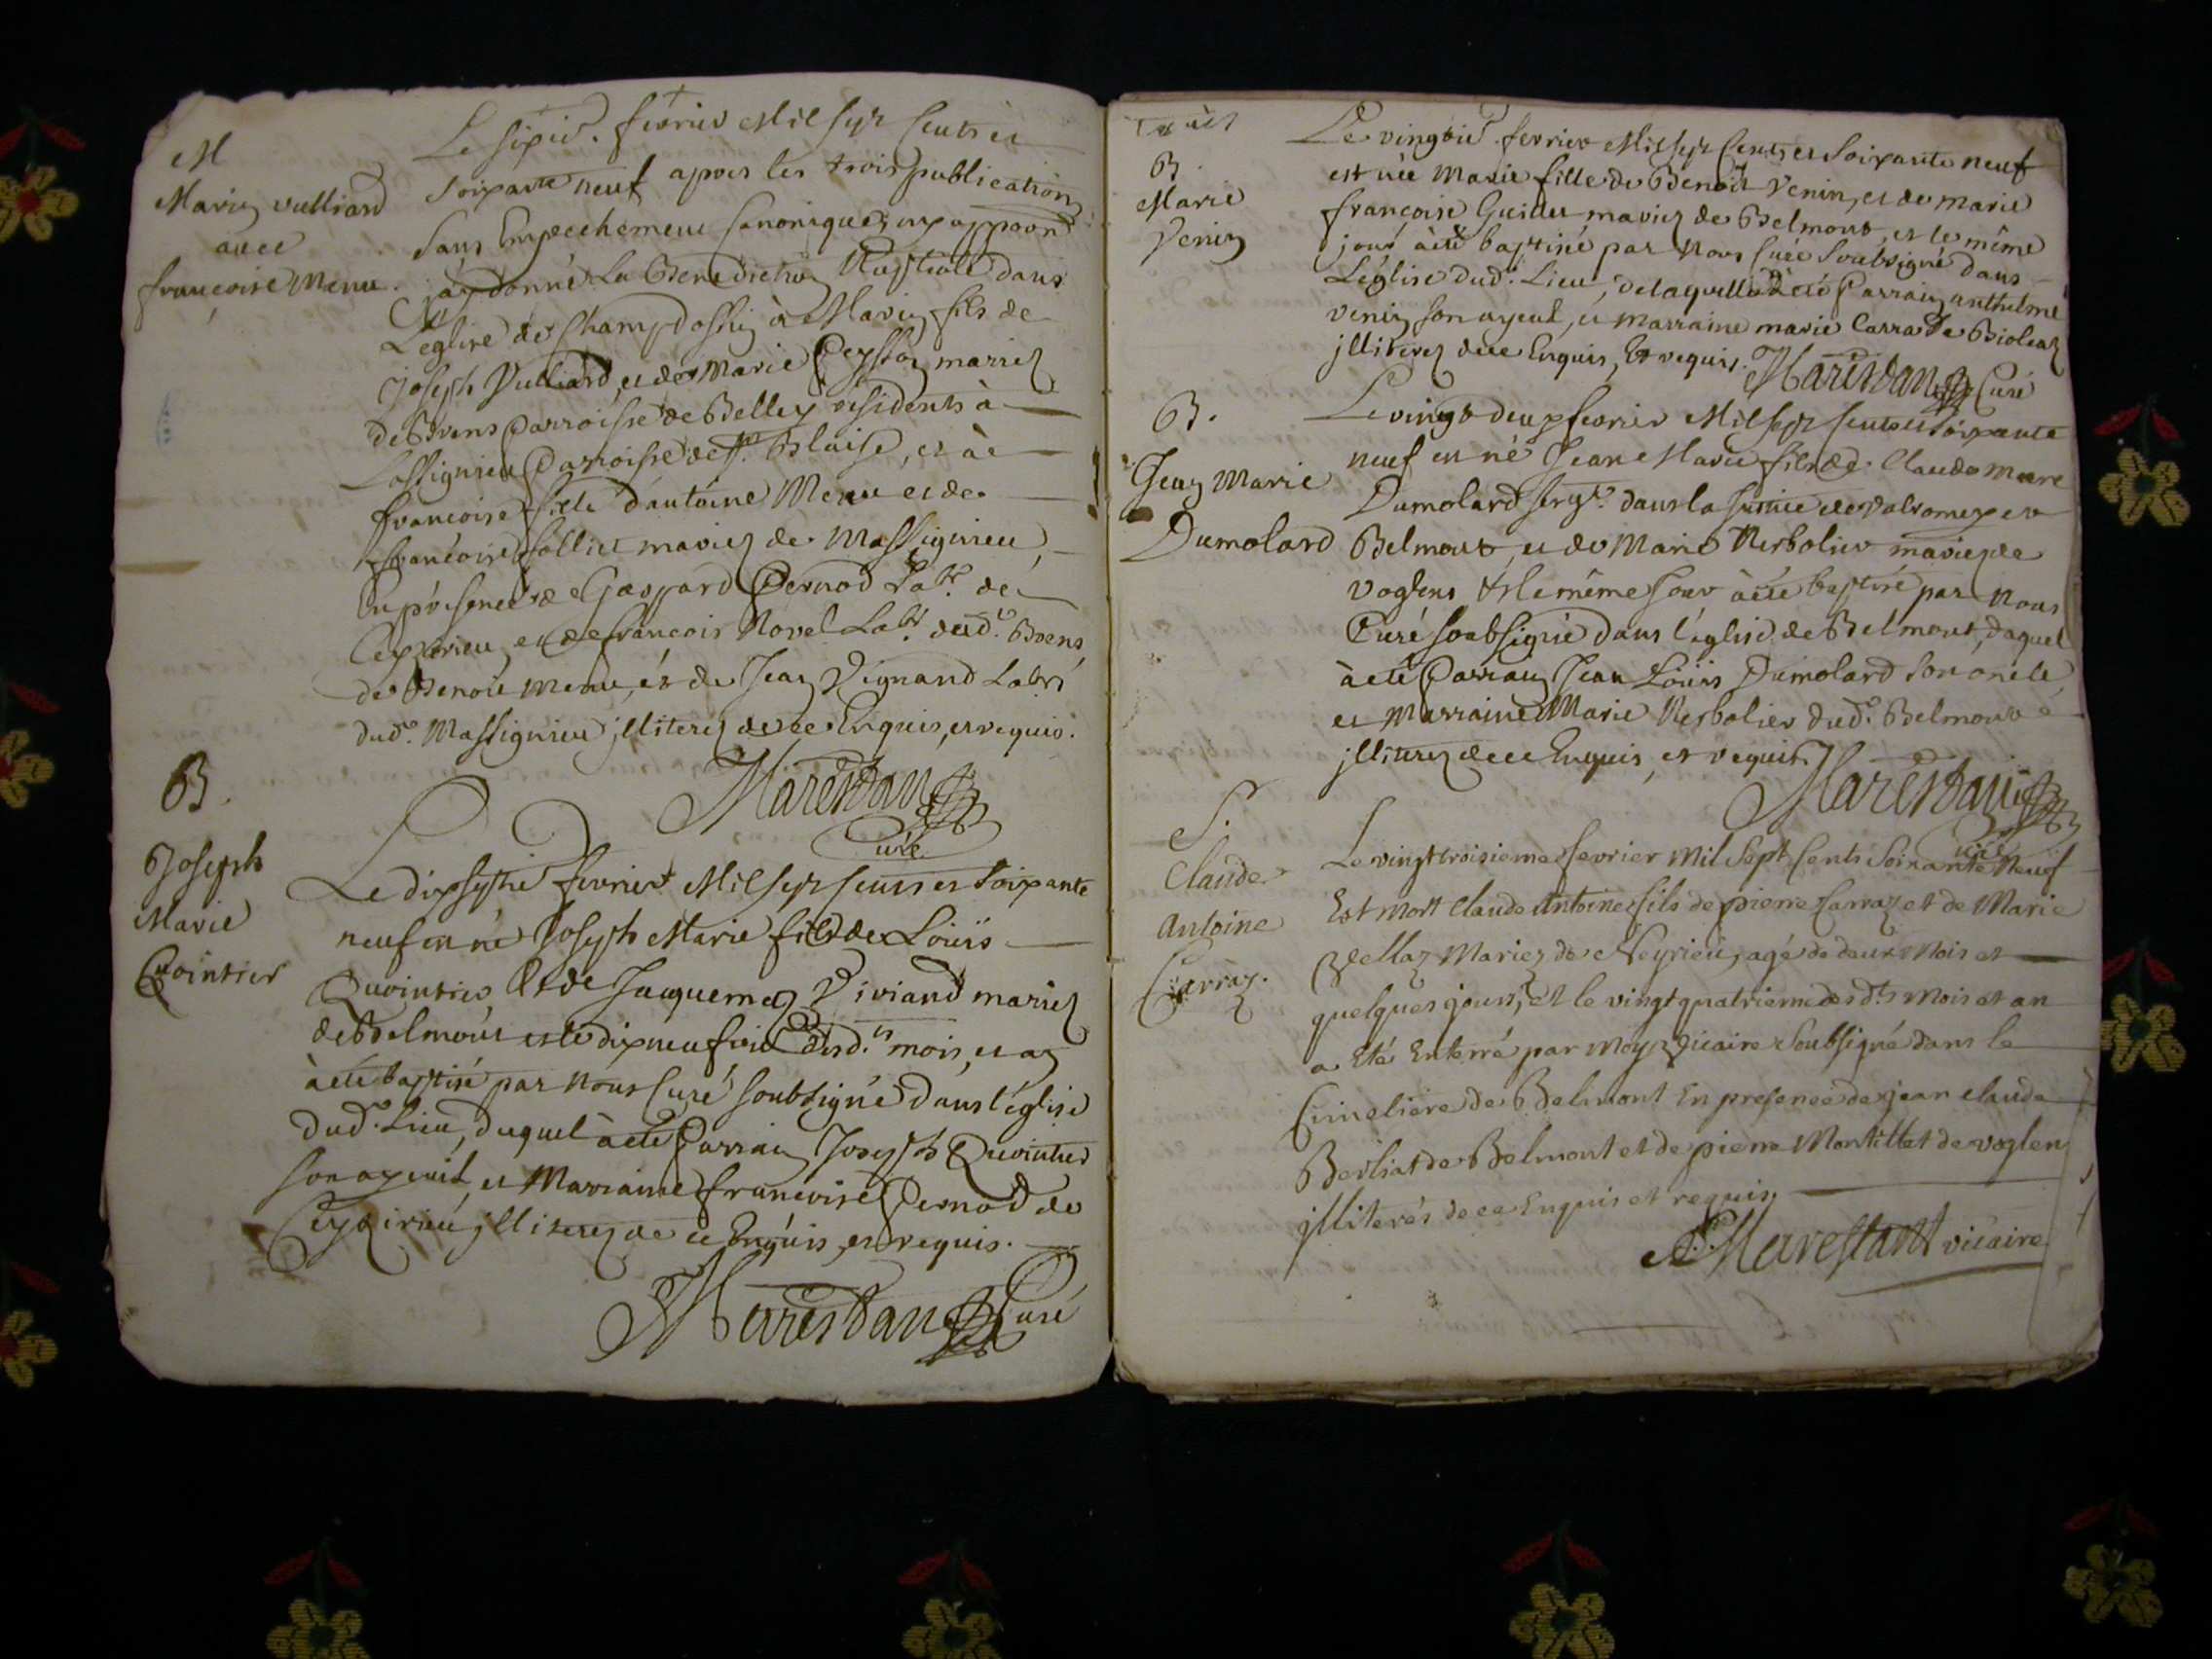 M
Marin vulliard
avec
françoise Menu.
Le sixie. fevrier Mil sept Cents et
soixante neuf apres les trois publications
sans Empechement Canonique
j'ay donné La Benediction Nuptiale dans
L'eglise de Champdossin à Marin fils de
Joseph Vulliard, et de Marie Peysson mariez
de Brens Parroisse de Belley residents à
Lassignieu Parroisse de St. Blaise, et à
françoise fille d'antoine Menu et de
françoise folliet mariez de Massignieu,
En présence de Gaspard Pernod Labr. de
Ceyzerieu, et de francois Novel Labr. dud. Brens,
de Benoit Menu, et de Jean Vignand Labrs
dud. Massignieu jlliterez de ce Enquis, et requis.
Marestan
Curé
B.
Joseph
Marie
Quointier
Le dix sept fevrier Mil sept cents et soixante
neuf est né Joseph Marie fils de Loüis
Quointier Et de Jacquema Viviand mariez
de Belmont et le dix neufvie desd.ts mois, et an
à eté baptisé par Nous Curé soubsigné dans l'église
dud. Lieu, duquel à eté Parrain Joseph Quointier
son ayeuil, et Marraine francoise Pernod de
Ceyzirieu jlliterez de ce Enquis et requis.
Marestan Curé
B.
Marie
Venin
Le vingtie. fevrier Mil sept Cents et Soixante neuf
est née Marie fille de Benoit Venin, et de marie
françoise Guillet mariez de Belmont, et le même
jour à eté baptisée par Nous Curé Soubsigné dans
L'église dud. Lieu, de laquelle à eté Parrain anthelme
venin son ayeul, et marraine marie Carra de Bioleaz
jlliterez de ce Enquis, Et requis. Marestan Curé
B.
Jean Marie
Dumolard
Le vingt deux fevrier Mil sept Cents et soixante
neuf est né Jean Marie fils de Claude
Dumolard dans la de Valromey et
Belmont, et de Marie Nerbolier mariez de
Voglens Et le même jour à eté baptisé par Nous
Curé soubsigné dans l'église de Belmont, duquel
à eté Parrain Jean Loüis Dumolard son oncle,
et Marraine Marie Nerbolier dud. Belmont
jlliterez de ce Enquis, et requis. Marestan
Curé
S.
Claude
Antoine
Carraz.
Le vingt troisieme fevrier Mil Sept Cents Soixante Neuf
Est Mort Claude Antoine fils de pierre Carraz et de Marie
Vellaz Mariez de Neyrieu, agé de deux Mois et
quelques jours, et le vingt quatrieme desdts Mois et an
a Eté Enterré par Moy Vicaire Soubsigné dans le
Cimetiere de Belmont En presence de jean claude
Berliat de Belmont et de pierre Montillet de voglen
jlliterés de ce Enquis et requis,
Marestant vicaire